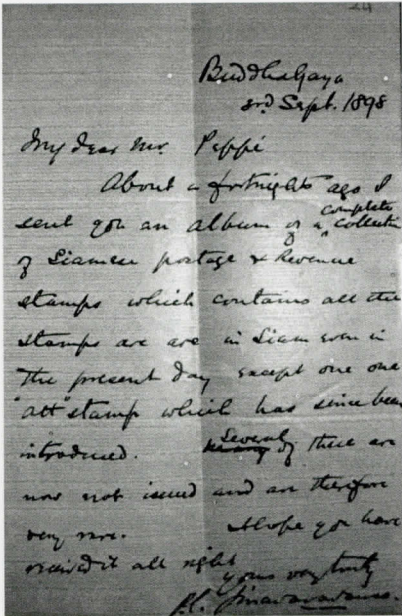 24
Buddha Gaya
3rd Sept. 1898
My dear Mr. Peppé
About a fortnights ago I
sent you an album of a complete collection
of Siamese postage & Revenue
stamps which contains all the
stamps are are in Siam even in
the present day except one one
"att" stamp which has since been
introduced. Several of these are
now not issued and are therefore
very rare. I hope you have
received it all right
yours very truly
P.C. Jinavaravansa.